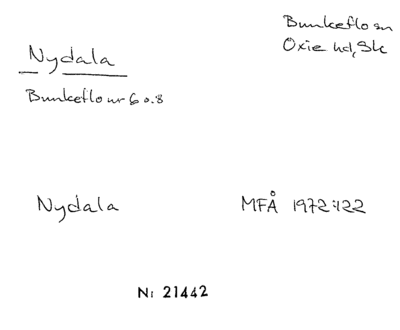 Bunkeflo sn
Oxie hd, Sk
Nydala
Bunkeflo nr 6 o. 8
Nydala
MFÅ 1972:122
N: 21442